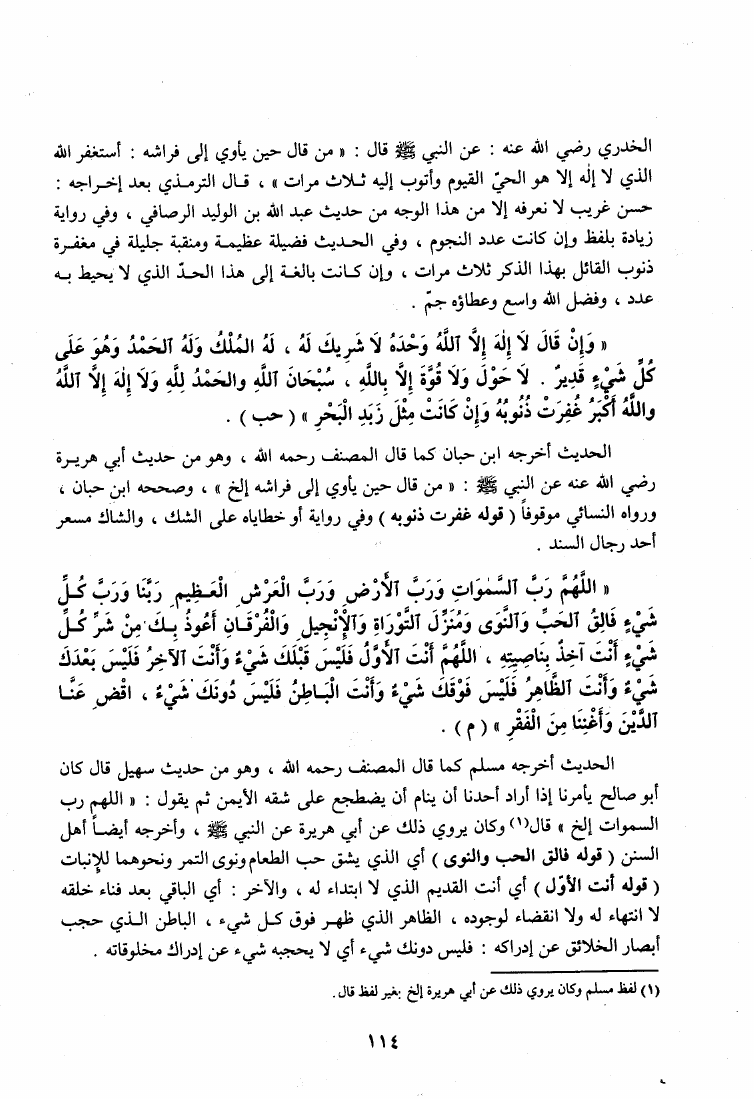 الخدري رضي الله عنه : عن النبي ﷺ قال : « من قال حين يأوي إلى فراشه : أستغفر الله
الذي لا إلٰه إلا هو الحيّ القيوم وأتوب إليه ثلاث مرات » ، قال الترمذي بعد إخراجه :
حسن غريب لا نعرفه إلا من هذا الوجه من حديث عبد الله بن الوليد الرصافي ، وفي رواية
زيادة بلفظ وإن كانت عدد النجوم ، وفي الحديث فضيلة عظيمة ومنقبة جليلة في مغفرة
ذنوب القائل بهذا الذكر ثلاث مرات ، وإن كانت بالغة إلى هذا الحدّ الذي لا يحيط به
عدد ، وفضل الله واسع وعطاؤه جمّ .
« وَإِنْ قَالَ لَا إِلٰهَ إِلَّا ٱللَّهُ وَحْدَهُ لَا شَرِيكَ لَهُ ، لَهُ المُلْكُ وَلَهُ ٱلحَمْدُ وَهُوَ عَلَى
كُلِّ شَيْءٍ قَدِيرٌ . لَا حَوْلَ وَلَا قُوَّةَ إِلَّا بِاللَّهِ ، سُبْحَانَ ٱللَّهِ والحَمْدُ لِلَّهِ وَلَا إِلٰهَ إِلَّا ٱللَّهُ
واللَّهُ أَكْبَرُ غُفِرَتْ ذُنُوبُهُ وَإِنْ كَانَتْ مِثْلَ زَبَدِ الْبَحْرِ » ( حب ) .
الحديث أخرجه ابن حبان كما قال المصنف رحمه الله ، وهو من حديث أبي هريرة
رضي الله عنه عن النبي ﷺ : « من قال حين يأوي إلى فراشه إلخ » ، وصححه ابن حبان ،
ورواه النسائي موقوفاً ( قوله غفرت ذنوبه ) وفي رواية أو خطاياه على الشك ، والشاك مسعر
أحد رجال السند .
« اللَّهُمَّ رَبَّ ٱلسَّمٰوَاتِ وَرَبَّ ٱلأَرْضِ وَرَبَّ الْعَرْشِ الْعَظِيمِ رَبَّنَا وَرَبَّ كُلِّ
شَيْءٍ فَالِقُ الْحَبِّ وَٱلنَّوَى وَمُنَزِّلَ التَّوْرَاةِ وَٱلإِنْجِيلِ وَالْفُرْقَانِ أَعُوذُ بِكَ مِنْ شَرِّ كُلِّ
شَيْءٍ أَنْتَ آخِذٌ بِنَاصِيَتِهِ ، اللَّهُمَّ أَنْتَ ٱلأَوَّلُ فَلَيْسَ قَبْلَكَ شَيْءٌ وَأَنْتَ الآخِرُ فَلَيْسَ بَعْدَكَ
شَيْءٌ وَأَنْتَ ٱلظَّاهِرُ فَلَيْسَ فَوْقَكَ شَيْءٌ وَأَنْتَ الْبَاطِنُ فَلَيْسَ دُونَكَ شَيْءٌ ، اقْضِ عَنَّا
ٱلدَّيْنَ وَأَغْنِنَا مِنَ الْفَقْرِ » ( م ) .
الحديث أخرجه مسلم كما قال المصنف رحمه الله ، وهو من حديث سهيل قال كان
أبو صالح يأمرنا إذا أراد أحدنا أن ينام أن يضطجع على شقه الأيمن ثم يقول : « اللهم رب
السموات إلخ » قال(١) وكان يروي ذلك عن أبي هريرة عن النبي ﷺ ، وأخرجه أيضاً أهل
السنن ( قوله فالق الحب والنوى ) أي الذي يشق حب الطعام ونوى التمر ونحوهما للإنبات
( قوله أنت الأوّل ) أي أنت القديم الذي لا ابتداء له ، والآخر : أي الباقي بعد فناء خلقه
لا انتهاء له ولا انقضاء لوجوده ، الظاهر الذي ظهر فوق كل شيء ، الباطن الذي حجب
أبصار الخلائق عن إدراكه : فليس دونك شيء أي لا يحجبه شيء عن إدراك مخلوقاته .
(١) لفظ مسلم وكان يروي ذلك عن أبي هريرة إلخ بغير لفظ قال.
١١٤